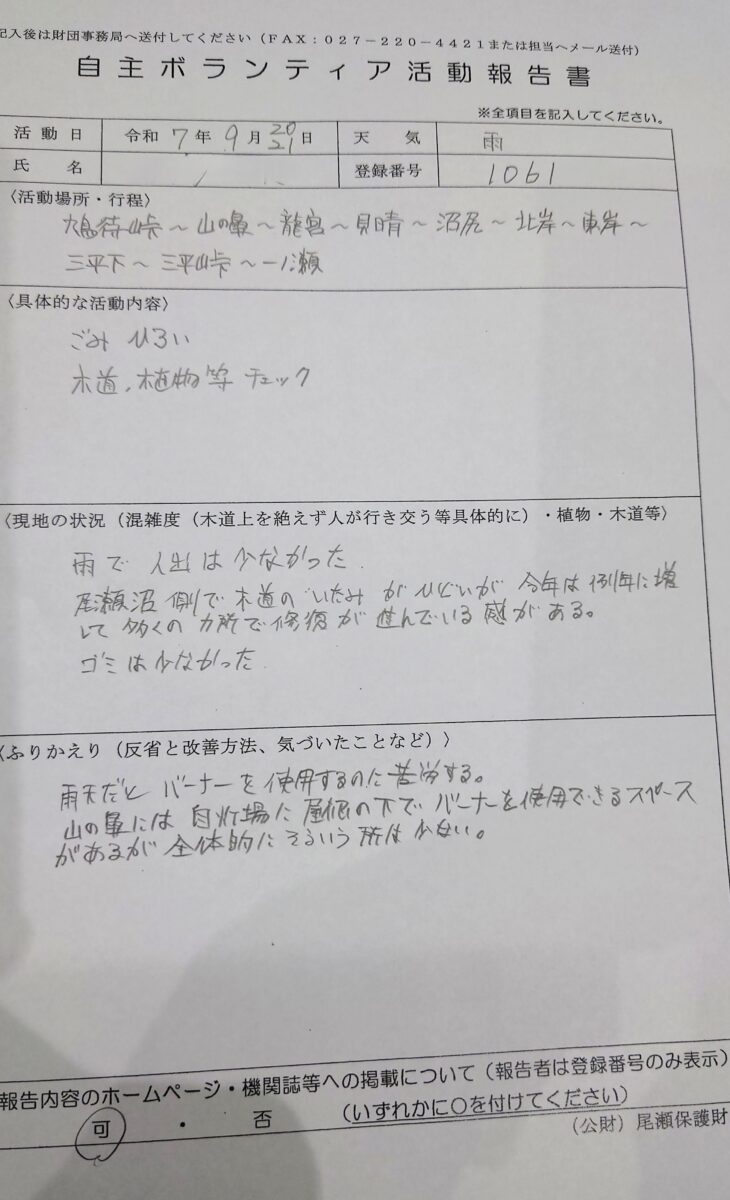 記入後は財団事務局へ送付してください（ＦＡＸ：０２７－２２０－４４２１または担当へメール送付）
自主ボランティア活動報告書
※全項目を記入してください。
活動日 令和 7年 9月 20 21日 天気 雨
氏名 登録番号 1061
〈活動場所・行程〉
鳩待峠～山の鼻～龍宮～見晴～沼尻～北岸～東岸～
三平下～三平峠～一ノ瀬
〈具体的な活動内容〉
ごみひろい
木道、植物等チェック
〈現地の状況（混雑度（木道上を絶えず人が行き交う等具体的に）・植物・木道等〉
雨で人出は少なかった
尾瀬沼側で木道のいたみがひどいが今年は例年に増
して多くのカ所で修復が進んでいる感がある。
ゴミは少なかった
〈ふりかえり（反省と改善方法、気づいたことなど）〉
雨天だとバーナーを使用するのに苦労する。
山の鼻には自炊場に屋根の下でバーナーを使用できるスペース
があるが全体的にそういう所は少ない。
報告内容のホームページ・機関誌等への掲載について（報告者は登録番号のみ表示）
可・否 （いずれかに○を付けてください）
（公財）尾瀬保護財